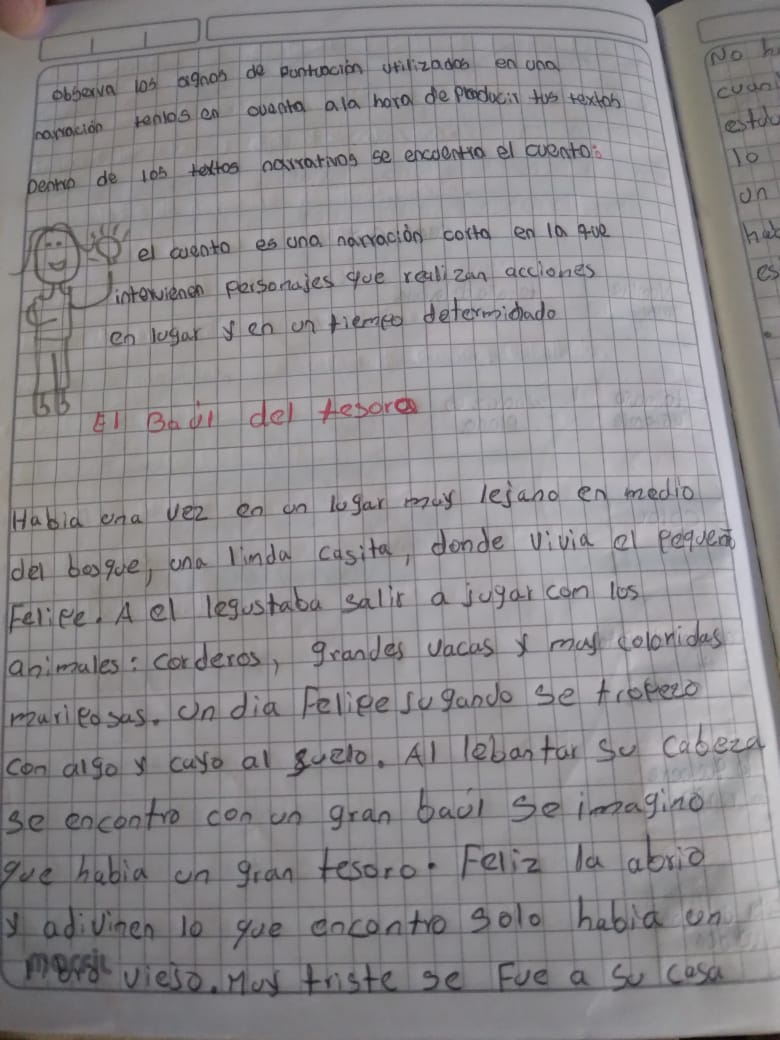 observa los signos de puntuación utilizados en una
narración tenlos en cuenta ala hora de producir tus textos
Dentro de los textos narrativos se encuentra el cuento:
el cuento es una narración corta en la que
intervienen personajes que realizan acciones
en lugar y en un tiempo determidado
El Baúl del tesoro
Habia una vez en un lugar muy lejano en medio
del bosque, una linda casita, donde vivia el pequeño
Felipe. A el legustaba salir a jugar con los
animales: corderos, grandes vacas y muy coloridas
mariposas. Un dia Felipe jugando se tropezo
con algo y cayo al suelo. Al lebantar su cabeza
se encontro con un gran baúl se imagino
que habia un gran tesoro. Feliz la abrio
y adivinen lo que encontro solo habia un
viejo. Muy triste se Fue a su casa
No
cuan
estu
lo
un
hab
es